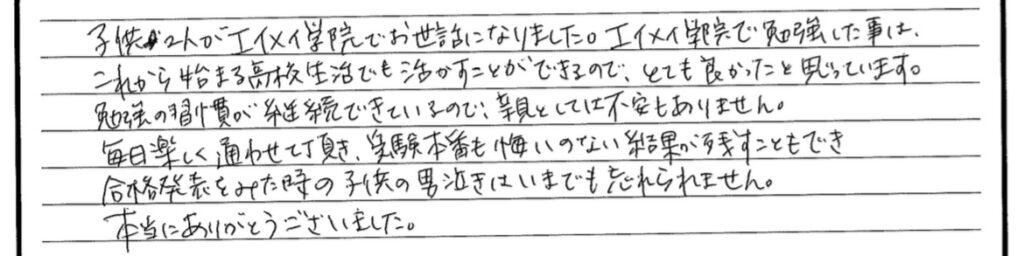 子供2人がエイメイ学院でお世話になりました。エイメイ学院で勉強した事は、
これから始まる高校生活でも活かすことができるので、とても良かったと思っています。
勉強の習慣が継続できているので、親としては不安もありません。
毎日楽しく通わせて頂き、実験本番も悔いのない結果が残すこともでき
合格発表をみた時の子供の男泣きはいまでも忘れられません。
本当にありがとうございました。